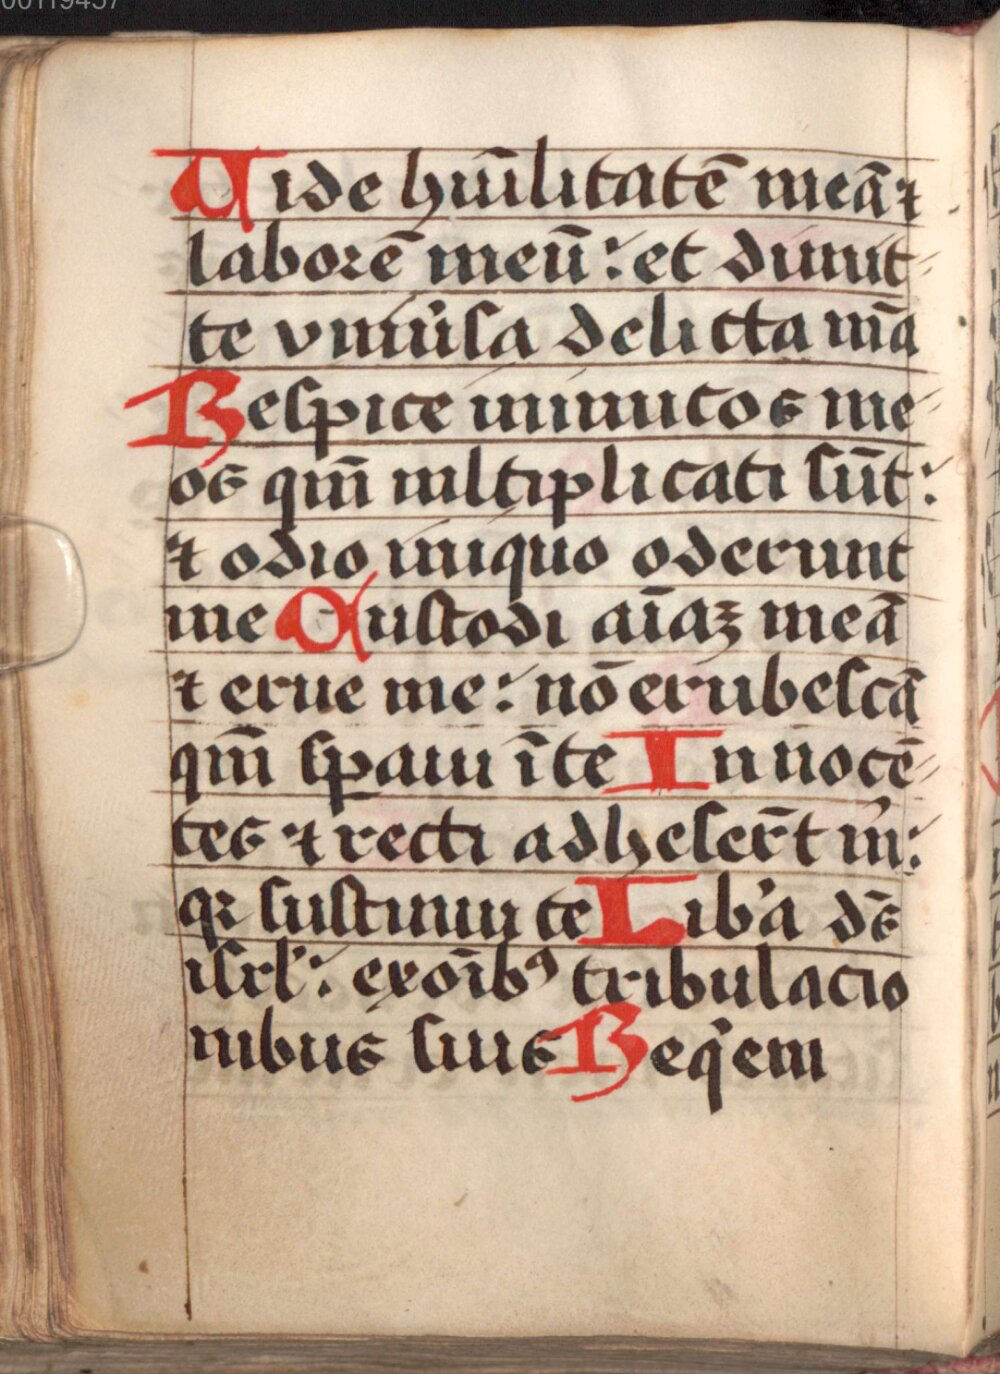 00119457
Vide hūilitatē meā ⁊
laborē meū : et dimit⸗
te vniūsa delicta mā
Respice inimicos me⸗
os qm̄ mltiplicati sūt :
⁊ odio iniquo oderunt
me Custodi aīaꝫ meā
⁊ erue me : nō erubescā
qm̄ spaui ī te Innocē⸗
tes ⁊ recti adheser̄t m̓ :
qꝛ sustinui te Lib̓a dē̄s
isrl̓ : ex oīb⁹ tribulacio
nibus suis Req̓em